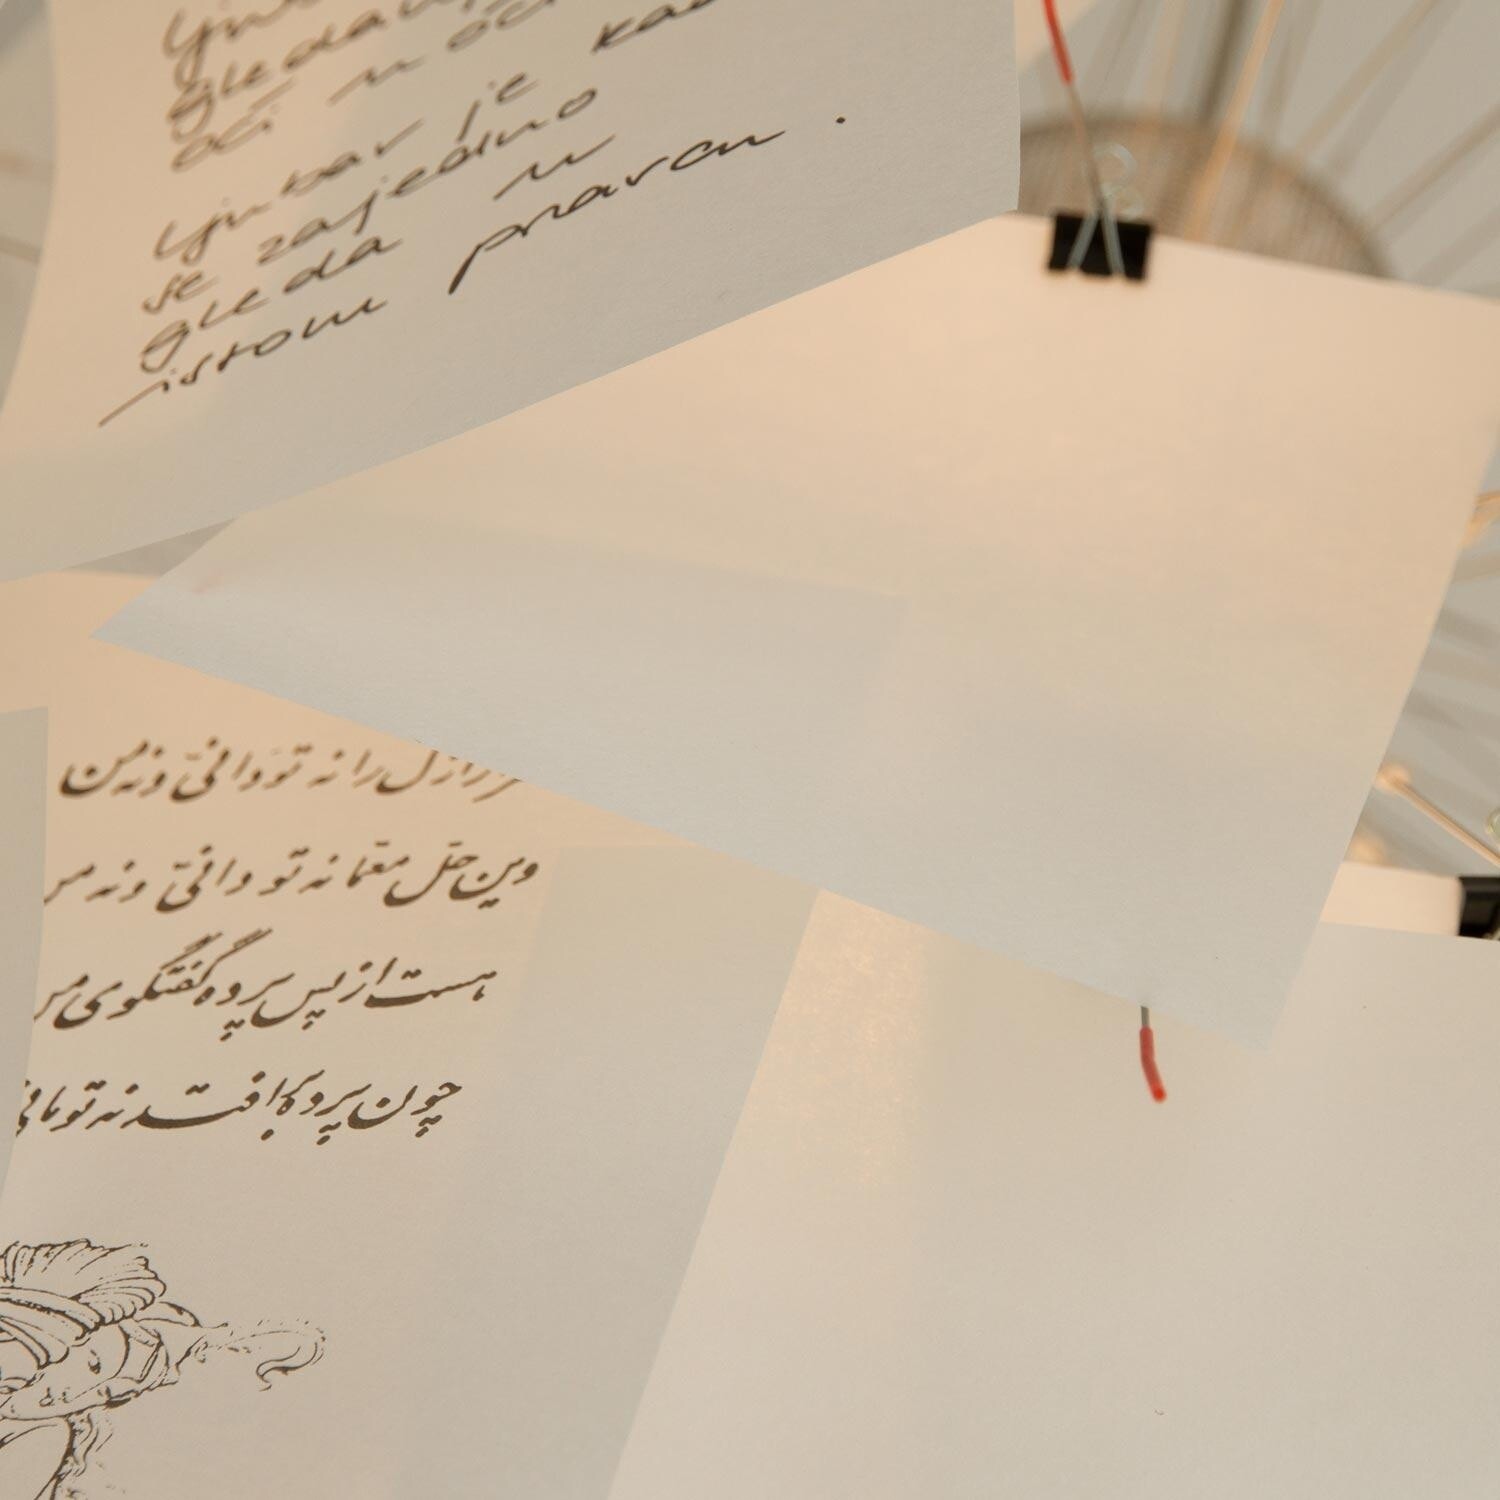 gleda
oči u oči
Ljubav je kad
se zajedno
gleda u
istom pravcu.
ازل را نه تو دانی و نه من
وین حل معما نه تو دانی و نه من
هست از پس پرده گفتگوی من
چون پرده بر افتد نه تو مانی